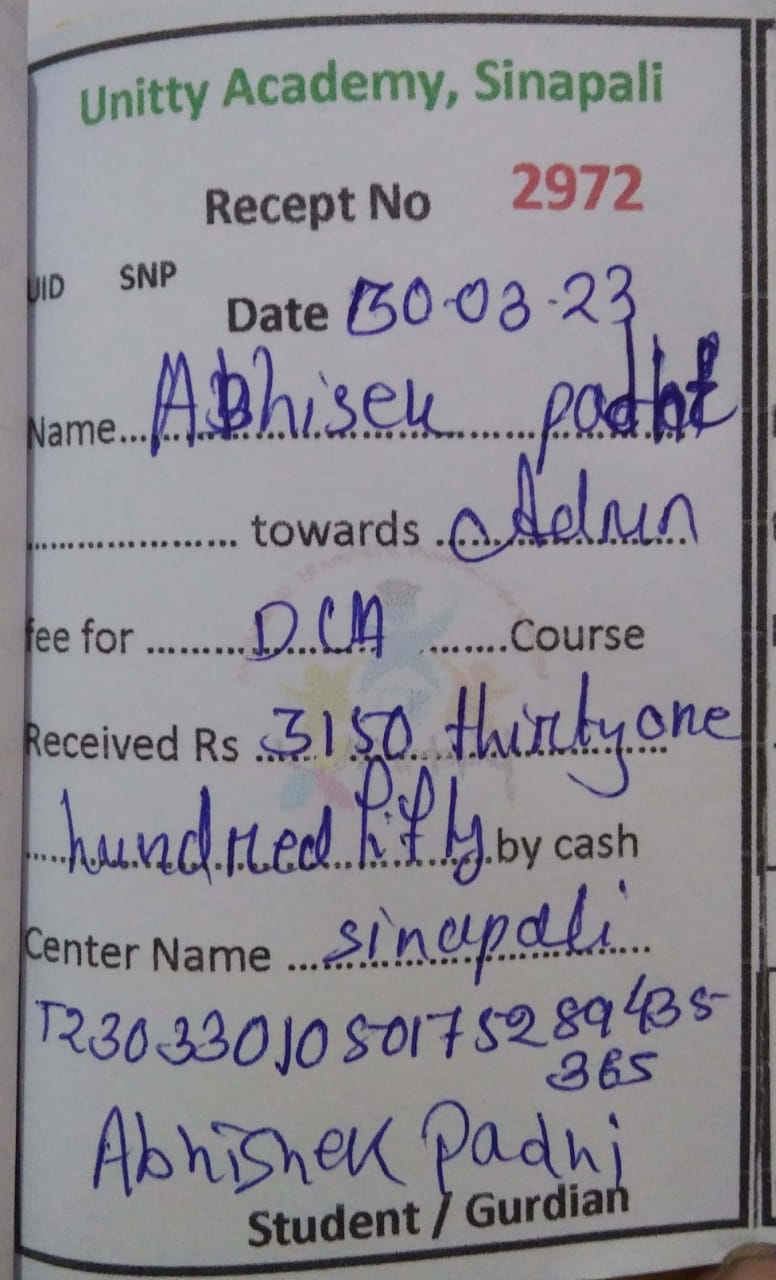 Unitty Academy, Sinapali
Recept No 2972
UID SNP
Date 30-03-23
Name... Abhisek padhi
.................... towards .Admn
fee for ......... D.C.A ........Course
Received Rs ...3150 thirtyone
.....hundred fifty.by cash
Center Name ...sinapali...
T2303301050175289435
365
Abhishek Padhi
Student / Gurdian